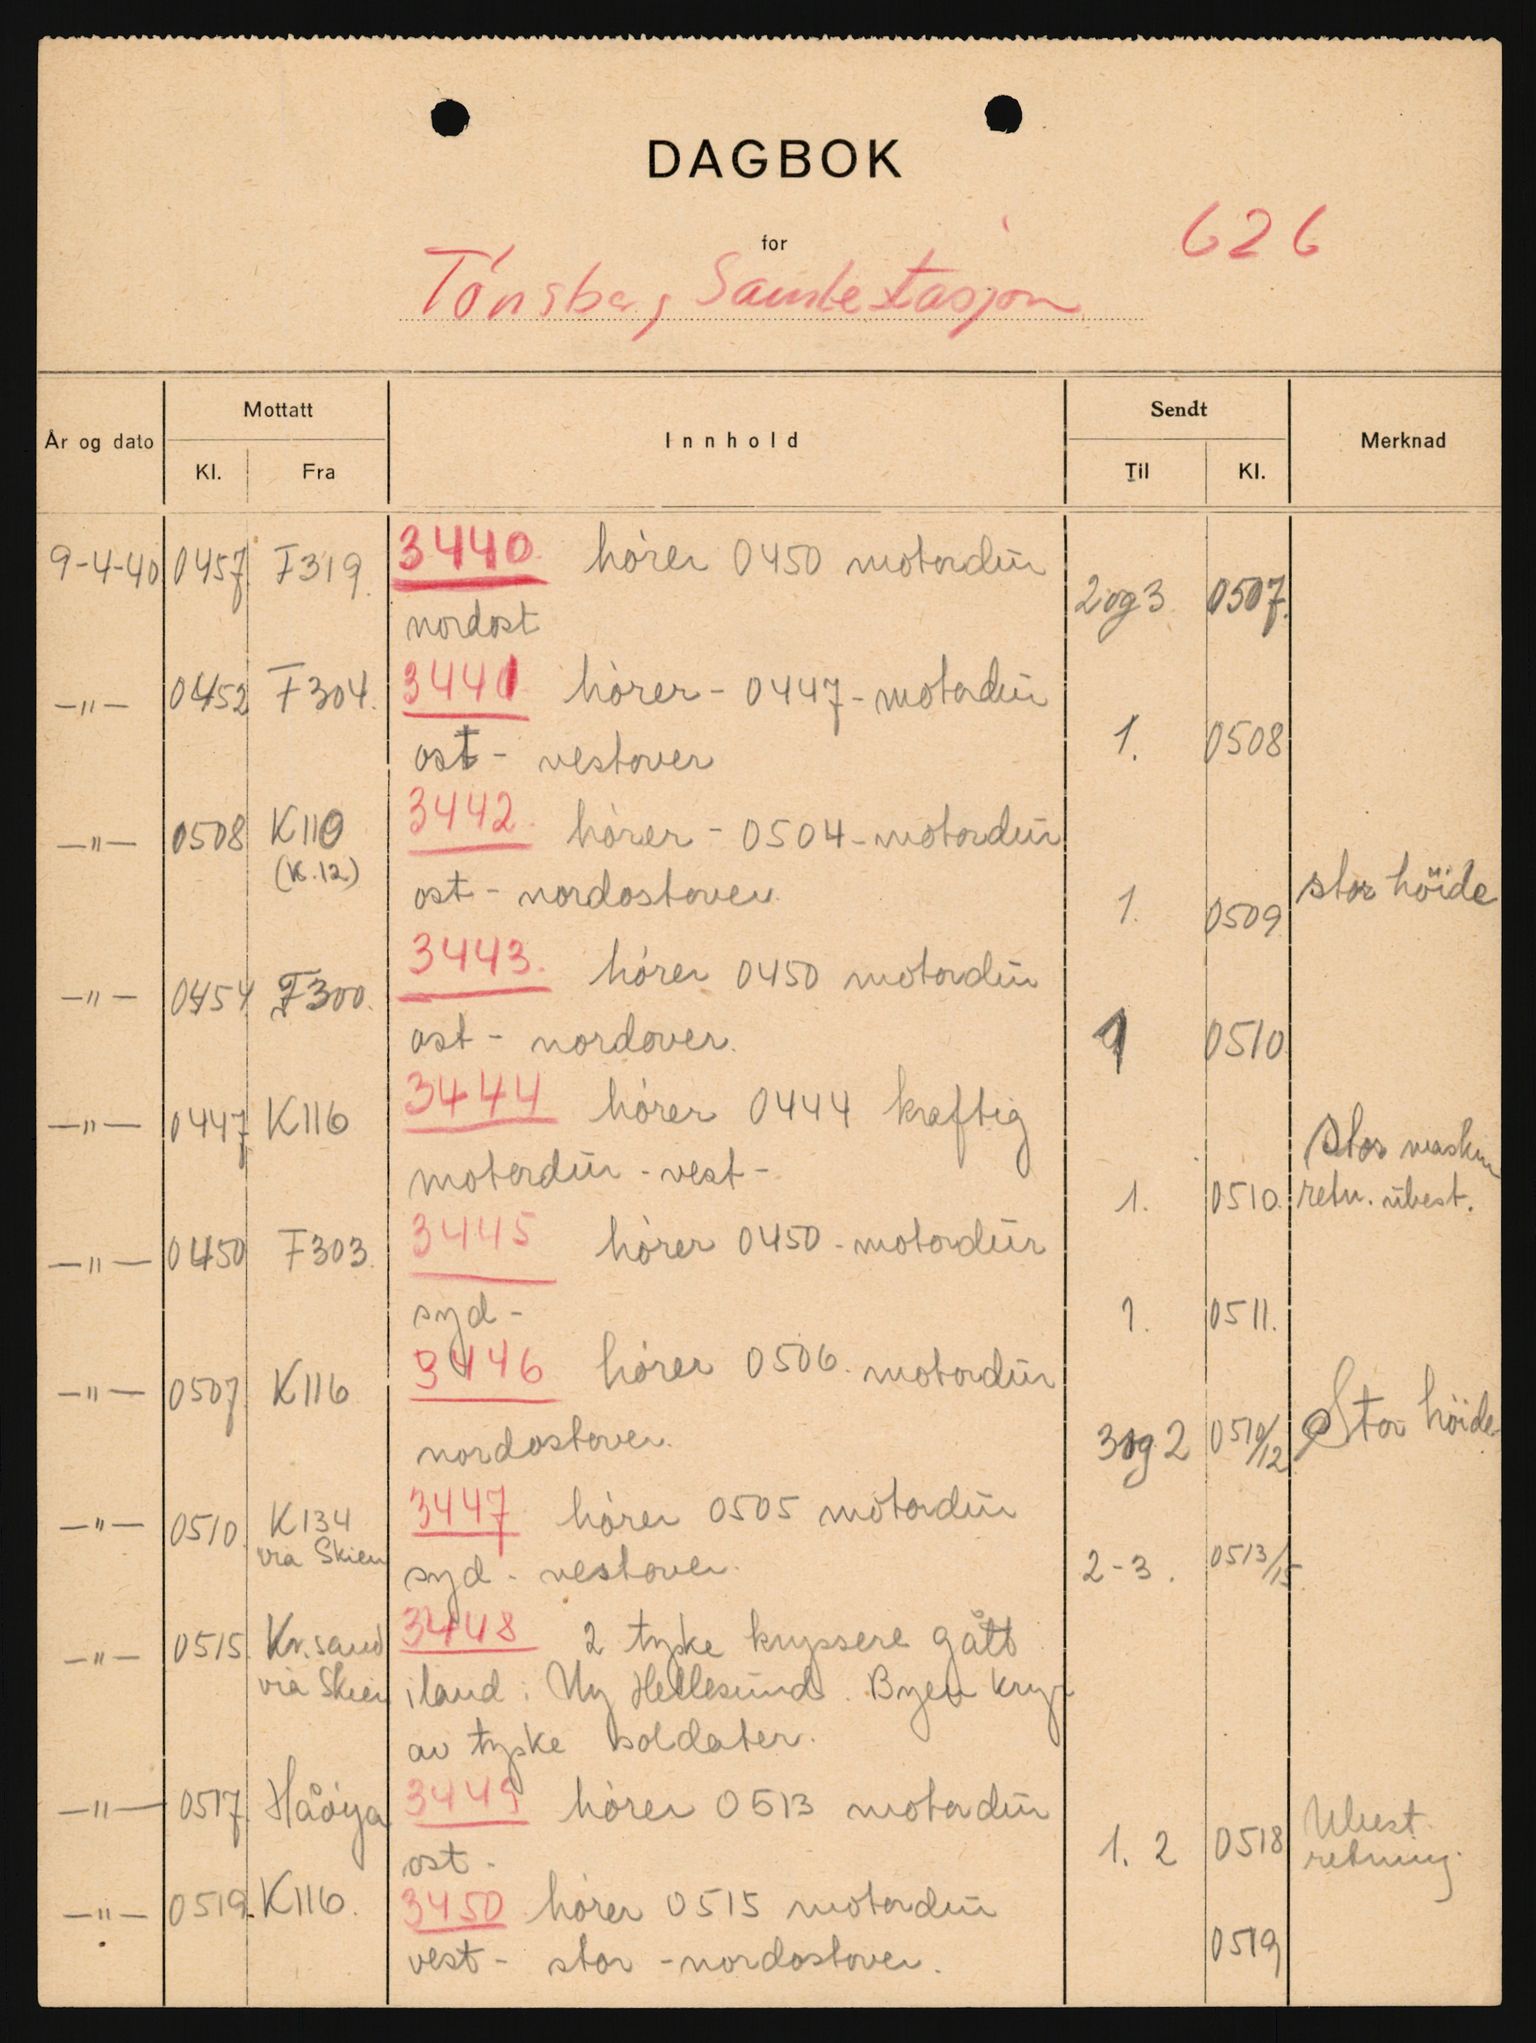 DAGBOK
for
626
Tönsberg Samlestasjon
År og dato Mottatt Innhold Sendt Merknad
Kl. Fra Til Kl.
9-4-40 0457 F319. 3440. hører 0450 motordur
nordost 2og3 0507.
-"- 0452 F304. 3441 hører - 0447 - motordur
ost - vestover 1. 0508
-"- 0508 K110 3442. hører - 0504 - motordur
(K.12) ost - nordostover. 1. 0509 stor höide
-"- 0454 F300. 3443. hører 0450 motordur
ost - nordover. 1 0510
-"- 0447 K116 3444 hører 0444 kraftig Stor maskin
motordur - vest - 1. 0510. retn. ubest.
-"- 0450 F303. 3445 hører 0450 - motordur
syd - 1. 0511.
-"- 0507 K116 3446 hører 0506. motordur
nordostover. 3og2 0510/12 Stor höide
-"- 0510. K134 3447 hører 0505 motordur
via Skien syd - vestover. 2-3. 0513/15
-"- 0515. Kr.sand 3448 2 tyske kryssere gått
via Skien iland i Ny Hellesund. Byen kryr
av tyske soldater.
-"- 0517. Håöya 3449 hører 0513 motordur Ubest.
ost - 1. 2 0518 retning.
-"- 0519. K116. 3450 hører 0515 motordur
vest - stor - nordostover. 0519